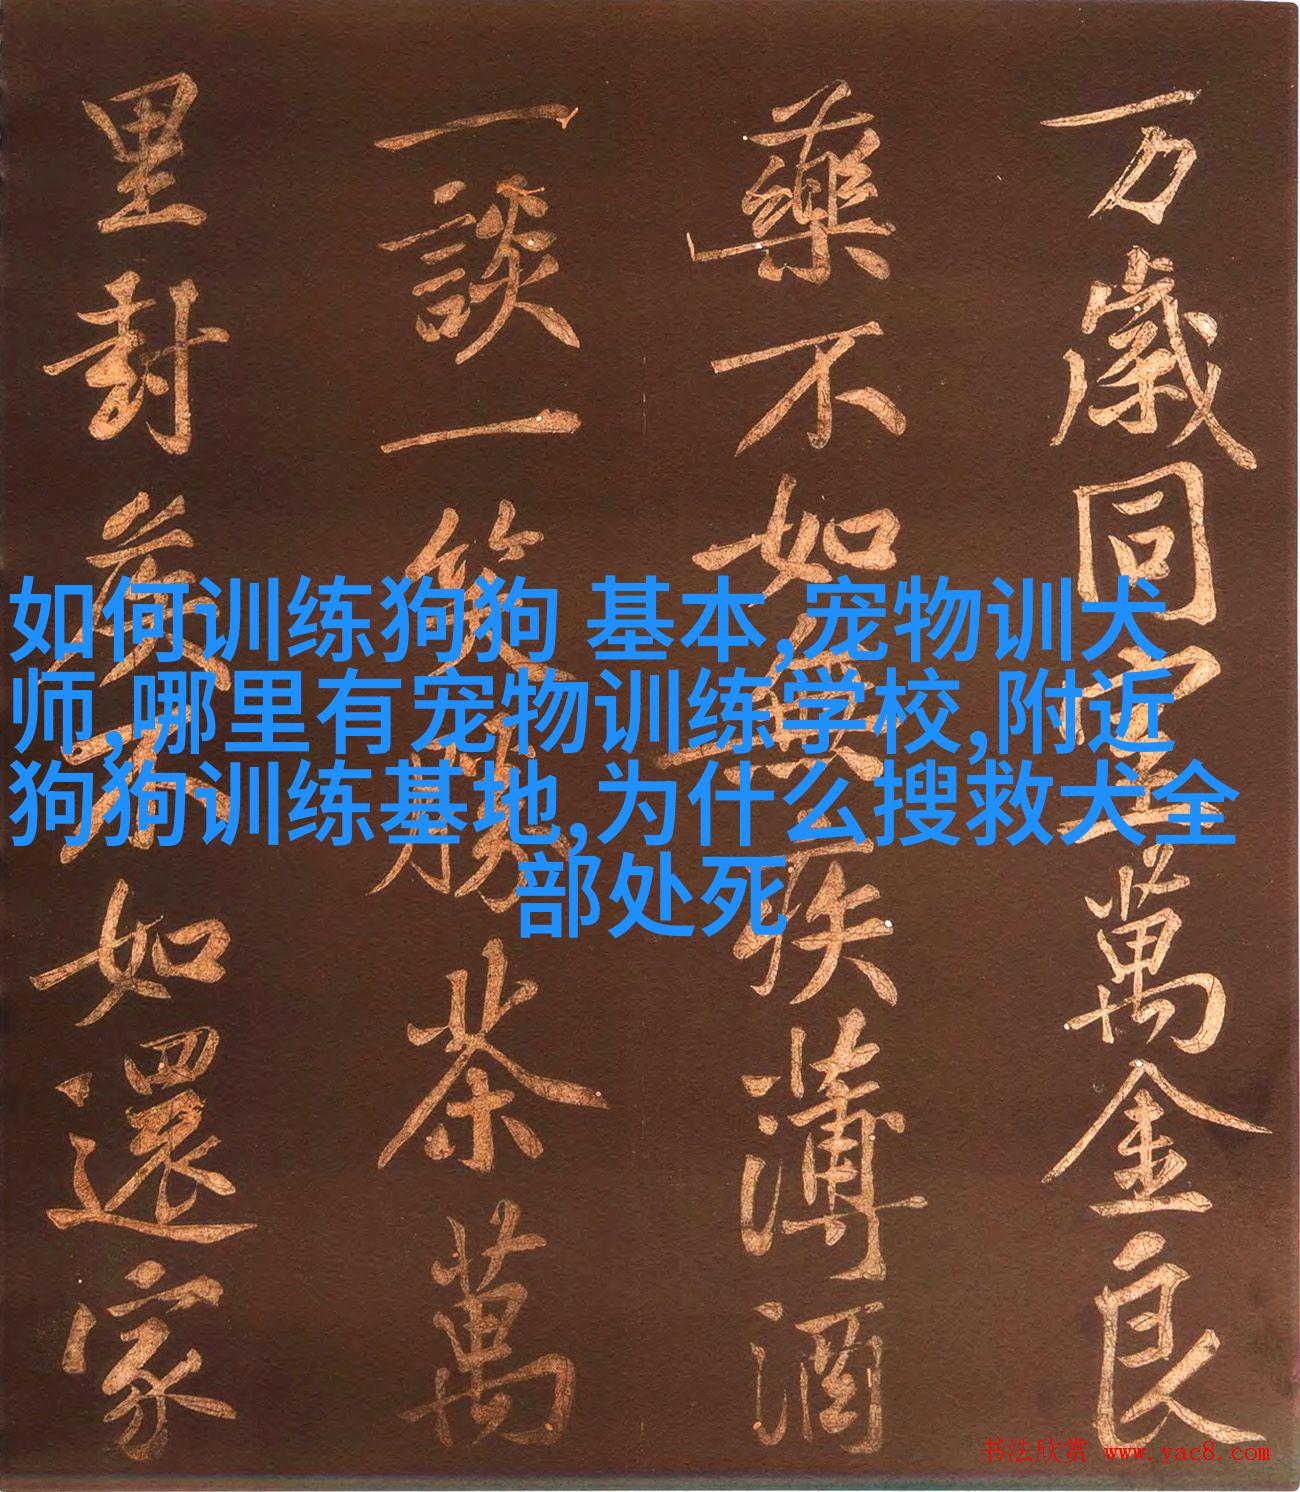 万歲同堂萬金良
藥不如無疾薄酒
一談一笑勝茶萬
里封侯不如還家
如何训练狗狗 基本,宠物训犬
师,哪里有宠物训练学校,附近
狗狗训练基地,为什么搜救犬全
部处死
书法欣赏 www.yac8.com